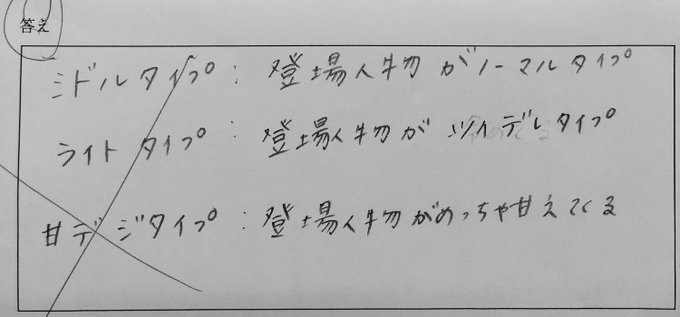 答え
ミドルタイプ：登場人物がノーマルタイプ
ライトタイプ：登場人物がツンデレタイプ
甘デジタイプ：登場人物がめっちゃ甘えてくる